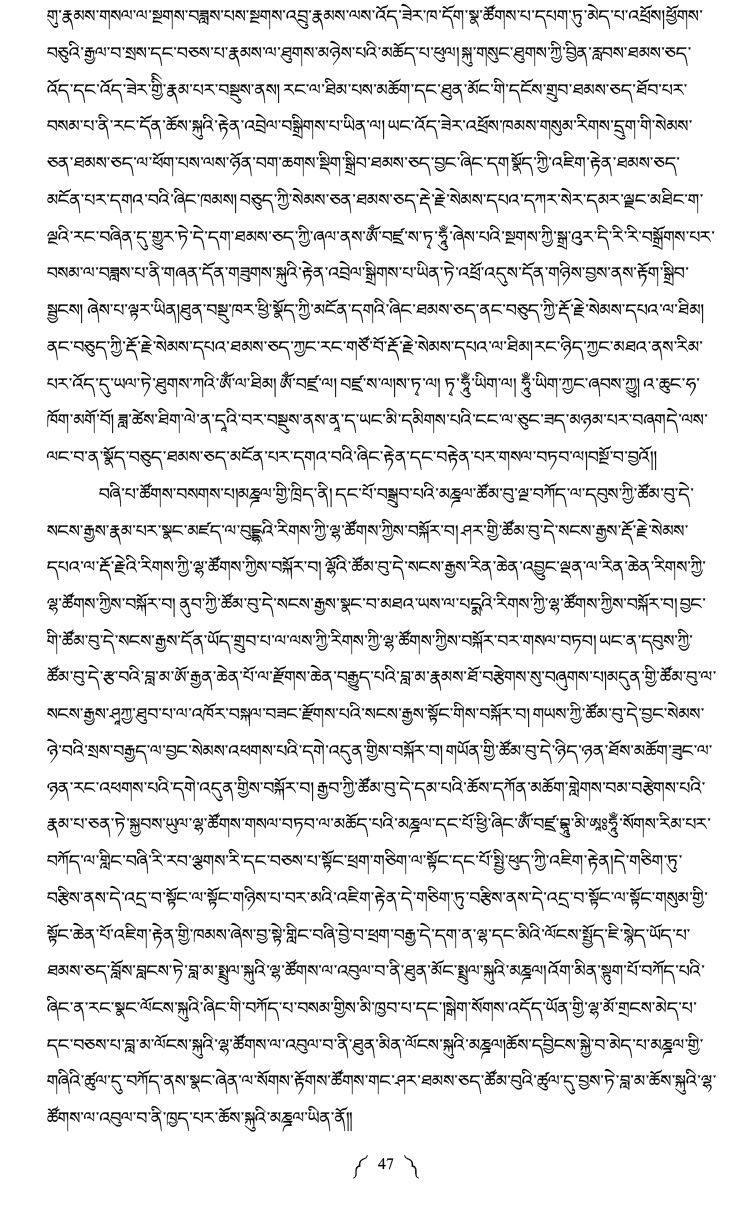 གུ་རྣམས་གསལ་ལ་སྔགས་བཟླས་པས་སྔགས་འབྲུ་རྣམས་ལས་འོད་ཟེར་ཁ་དོག་སྣ་ཚོགས་པ་དཔག་ཏུ་མེད་པ་འཕྲོས།ཕྱོགས་
བཅུའི་རྒྱལ་བ་སྲས་དང་བཅས་པ་རྣམས་ལ་ཐུགས་མཉེས་པའི་མཆོད་པ་ཕུལ། སྐུ་གསུང་ཐུགས་ཀྱི་བྱིན་རླབས་ཐམས་ཅད་
འོད་དང་འོད་ཟེར་གྱི་རྣམ་པར་བསྡུས་ནས། རང་ལ་ཐིམ་པས་མཆོག་དང་ཐུན་མོང་གི་དངོས་གྲུབ་ཐམས་ཅད་ཐོབ་པར་
བསམ་པ་ནི་རང་དོན་ཆོས་སྐུའི་རྟེན་འབྲེལ་བསྒྲིགས་པ་ཡིན་ལ། ཡང་འོད་ཟེར་འཕྲོས་ཁམས་གསུམ་རིགས་དྲུག་གི་སེམས་
ཅན་ཐམས་ཅད་ལ་ཕོག་པས་ལས་ཉོན་བག་ཆགས་སྡིག་སྒྲིབ་ཐམས་ཅད་བྱང་ཞིང་དག སྣོད་ཀྱི་འཇིག་རྟེན་ཐམས་ཅད་
མངོན་པར་དགའ་བའི་ཞིང་ཁམས། བཅུད་ཀྱི་སེམས་ཅན་ཐམས་ཅད་རྡོ་རྗེ་སེམས་དཔའ་དཀར་སེར་དམར་ལྗང་མཐིང་ག་
ལྔའི་རང་བཞིན་དུ་གྱུར་ཏེ་དེ་དག་ཐམས་ཅད་ཀྱི་ཞལ་ནས་ཨོཾ་བཛྲ་ས་ཏྭ་ཧཱུྃ་ཞེས་པའི་སྔགས་ཀྱི་སྒྲ་འུར་དི་རི་རི་བསྒྲོགས་པར་
བསམ་ལ་བཟླས་པ་ནི་གཞན་དོན་གཟུགས་སྐུའི་རྟེན་འབྲེལ་སྒྲིགས་པ་ཡིན་ཏེ་འཕྲོ་འདུས་དོན་གཉིས་བྱས་ནས་རྟོག་སྒྲིབ་
སྦྱངས། ཞེས་པ་ལྟར་ཡིན།ཐུན་བསྡུ་ཁར་ཕྱི་སྣོད་ཀྱི་མངོན་དགའི་ཞིང་ཐམས་ཅད་ནང་བཅུད་ཀྱི་རྡོ་རྗེ་སེམས་དཔའ་ལ་ཐིམ།
ནང་བཅུད་ཀྱི་རྡོ་རྗེ་སེམས་དཔའ་ཐམས་ཅད་ཀྱང་རང་གཙོ་བོ་རྡོ་རྗེ་སེམས་དཔའ་ལ་ཐིམ། རང་ཉིད་ཀྱང་མཐའ་ནས་རིམ་
པར་འོད་དུ་ཡལ་ཏེ་ཐུགས་ཀའི་ཨོཾ་ལ་ཐིམ། ཨོཾ་བཛྲ་ལ། བཛྲ་ས་ལ།ས་ཏྭ་ལ། ཏྭ་ཧཱུྃ་ཡིག་ལ། ཧཱུྃ་ཡིག་ཀྱང་ཞབས་ཀྱུ། འ་ཆུང་ཧ་
ཁོག་མགོ་བོ། ཟླ་ཚེས་ཐིག་ལེ་ན་དའི་བར་བསྡུས་ནས་ནཱ་ད་ཡང་མི་དམིགས་པའི་ངང་ལ་ཅུང་ཟད་མཉམ་པར་བཞག།དེ་ལས་
ལང་བ་ན་སྣོད་བཅུད་ཐམས་ཅད་མངོན་པར་དགའ་བའི་ཞིང་རྟེན་དང་བརྟེན་པར་གསལ་བཏབ་ལ།བསྔོ་བ་བྱའོ།།
བཞི་པ་ཚོགས་བསགས་པ།མཎྜལ་གྱི་ཁྲིད་ནི། དང་པོ་བསྒྲུབ་པའི་མཎྜལ་ཚོམ་བུ་ལྔ་བཀོད་ལ་དབུས་ཀྱི་ཚོམ་བུ་དེ་
སངས་རྒྱས་རྣམ་པར་སྣང་མཛད་ལ་བུདྡྷའི་རིགས་ཀྱི་ལྷ་ཚོགས་ཀྱིས་བསྐོར་བ། ཤར་གྱི་ཚོམ་བུ་དེ་སངས་རྒྱས་རྡོ་རྗེ་སེམས་
དཔའ་ལ་རྡོ་རྗེའི་རིགས་ཀྱི་ལྷ་ཚོགས་ཀྱིས་བསྐོར་བ། ལྷོའི་ཚོམ་བུ་དེ་སངས་རྒྱས་རིན་ཆེན་འབྱུང་ལྡན་ལ་རིན་ཆེན་རིགས་ཀྱི་
ལྷ་ཚོགས་ཀྱིས་བསྐོར་བ། ནུབ་ཀྱི་ཚོམ་བུ་དེ་སངས་རྒྱས་སྣང་བ་མཐའ་ཡས་ལ་པདྨའི་རིགས་ཀྱི་ལྷ་ཚོགས་ཀྱིས་བསྐོར་བ། བྱང་
གི་ཚོམ་བུ་དེ་སངས་རྒྱས་དོན་ཡོད་གྲུབ་པ་ལ་ལས་ཀྱི་རིགས་ཀྱི་ལྷ་ཚོགས་ཀྱིས་བསྐོར་བར་གསལ་བཏབ། ཡང་ན་དབུས་ཀྱི་
ཚོམ་བུ་དེ་རྩ་བའི་བླ་མ་ཨོ་རྒྱན་ཆེན་པོ་ལ་རྫོགས་ཆེན་བརྒྱུད་པའི་བླ་མ་རྣམས་ཐོ་བརྩེགས་སུ་བཞུགས་པ།མདུན་གྱི་ཚོམ་བུ་ལ་
སངས་རྒྱས་ཤཱཀྱ་ཐུབ་པ་ལ་འཁོར་བསྐལ་བཟང་རྫོགས་པའི་སངས་རྒྱས་སྟོང་གིས་བསྐོར་བ། གཡས་ཀྱི་ཚོམ་བུ་དེ་བྱང་སེམས་
ཉེ་བའི་སྲས་བརྒྱད་ལ་བྱང་སེམས་འཕགས་པའི་དགེ་འདུན་གྱིས་བསྐོར་བ། གཡོན་གྱི་ཚོམ་བུ་དེ་ཉིད་ཉན་ཐོས་མཆོག་ཟུང་ལ་
ཉན་རང་འཕགས་པའི་དགེ་འདུན་གྱིས་བསྐོར་བ། རྒྱབ་ཀྱི་ཚོམ་བུ་དེ་དམ་པའི་ཆོས་དཀོན་མཆོག་གླེགས་བམ་བརྩེགས་པའི་
རྣམ་པ་ཅན་ཏེ་སྐྱབས་ཡུལ་ལྷ་ཚོགས་གསལ་བཏབ་ལ་མཆོད་པའི་མཎྜལ་དང་པོ་ཕྱི་ཞིང་ཨོཾ་བཛྲ་བྷཱུ་མི་ཨཱཿཧཱུྃ་སོགས་རིམ་པར་
བཀོད་ལ་གླིང་བཞི་རི་རབ་ལྕགས་རི་དང་བཅས་པ་སྟོང་ཕྲག་གཅིག་ལ་སྟོང་དང་པོ་སྤྱི་ཕུད་ཀྱི་འཇིག་རྟེན།དེ་གཅིག་ཏུ་
བརྩིས་ནས་དེ་འདྲ་བ་སྟོང་ལ་སྟོང་གཉིས་པ་བར་མའི་འཇིག་རྟེན་དེ་གཅིག་ཏུ་བརྩིས་ནས་དེ་འདྲ་བ་སྟོང་ལ་སྟོང་གསུམ་གྱི་
སྟོང་ཆེན་པོ་འཇིག་རྟེན་གྱི་ཁམས་ཞེས་བྱ་སྟེ་གླིང་བཞི་བྱེ་བ་ཕྲག་བརྒྱ་དེ་དག་ན་ལྷ་དང་མིའི་ལོངས་སྤྱོད་ཇི་སྙེད་ཡོད་པ་
ཐམས་ཅད་བློས་བླངས་ཏེ་བླ་མ་སྤྲུལ་སྐུའི་ལྷ་ཚོགས་ལ་འབུལ་བ་ནི་ཐུན་མོང་སྤྲུལ་སྐུའི་མཎྜལ།འོག་མིན་སྟུག་པོ་བཀོད་པའི་
ཞིང་ན་རང་སྣང་ལོངས་སྐུའི་ཞིང་གི་བཀོད་པ་བསམ་གྱིས་མི་ཁྱབ་པ་དང་།སྒེག་སོགས་འདོད་ཡོན་གྱི་ལྷ་མོ་གྲངས་མེད་པ་
དང་བཅས་པ་བླ་མ་ལོངས་སྐུའི་ལྷ་ཚོགས་ལ་འབུལ་བ་ནི་ཐུན་མིན་ལོངས་སྐུའི་མཎྜལ།ཆོས་དབྱིངས་སྐྱེ་བ་མེད་པ་མཎྜལ་གྱི་
གཞིའི་ཚུལ་དུ་བཀོད་ནས་སྣང་ཞེན་ལ་སོགས་རྟོགས་ཚོགས་གང་ཤར་ཐམས་ཅད་ཚོམ་བུའི་ཚུལ་དུ་བྱས་ཏེ་བླ་མ་ཆོས་སྐུའི་ལྷ་
ཚོགས་ལ་འབུལ་བ་ནི་ཁྱད་པར་ཆོས་སྐུའི་མཎྜལ་ཡིན་ནོ།།
47